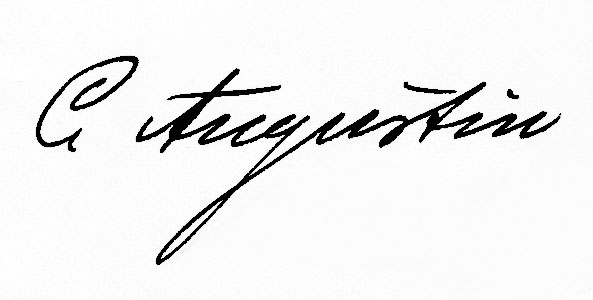 C. Augustin